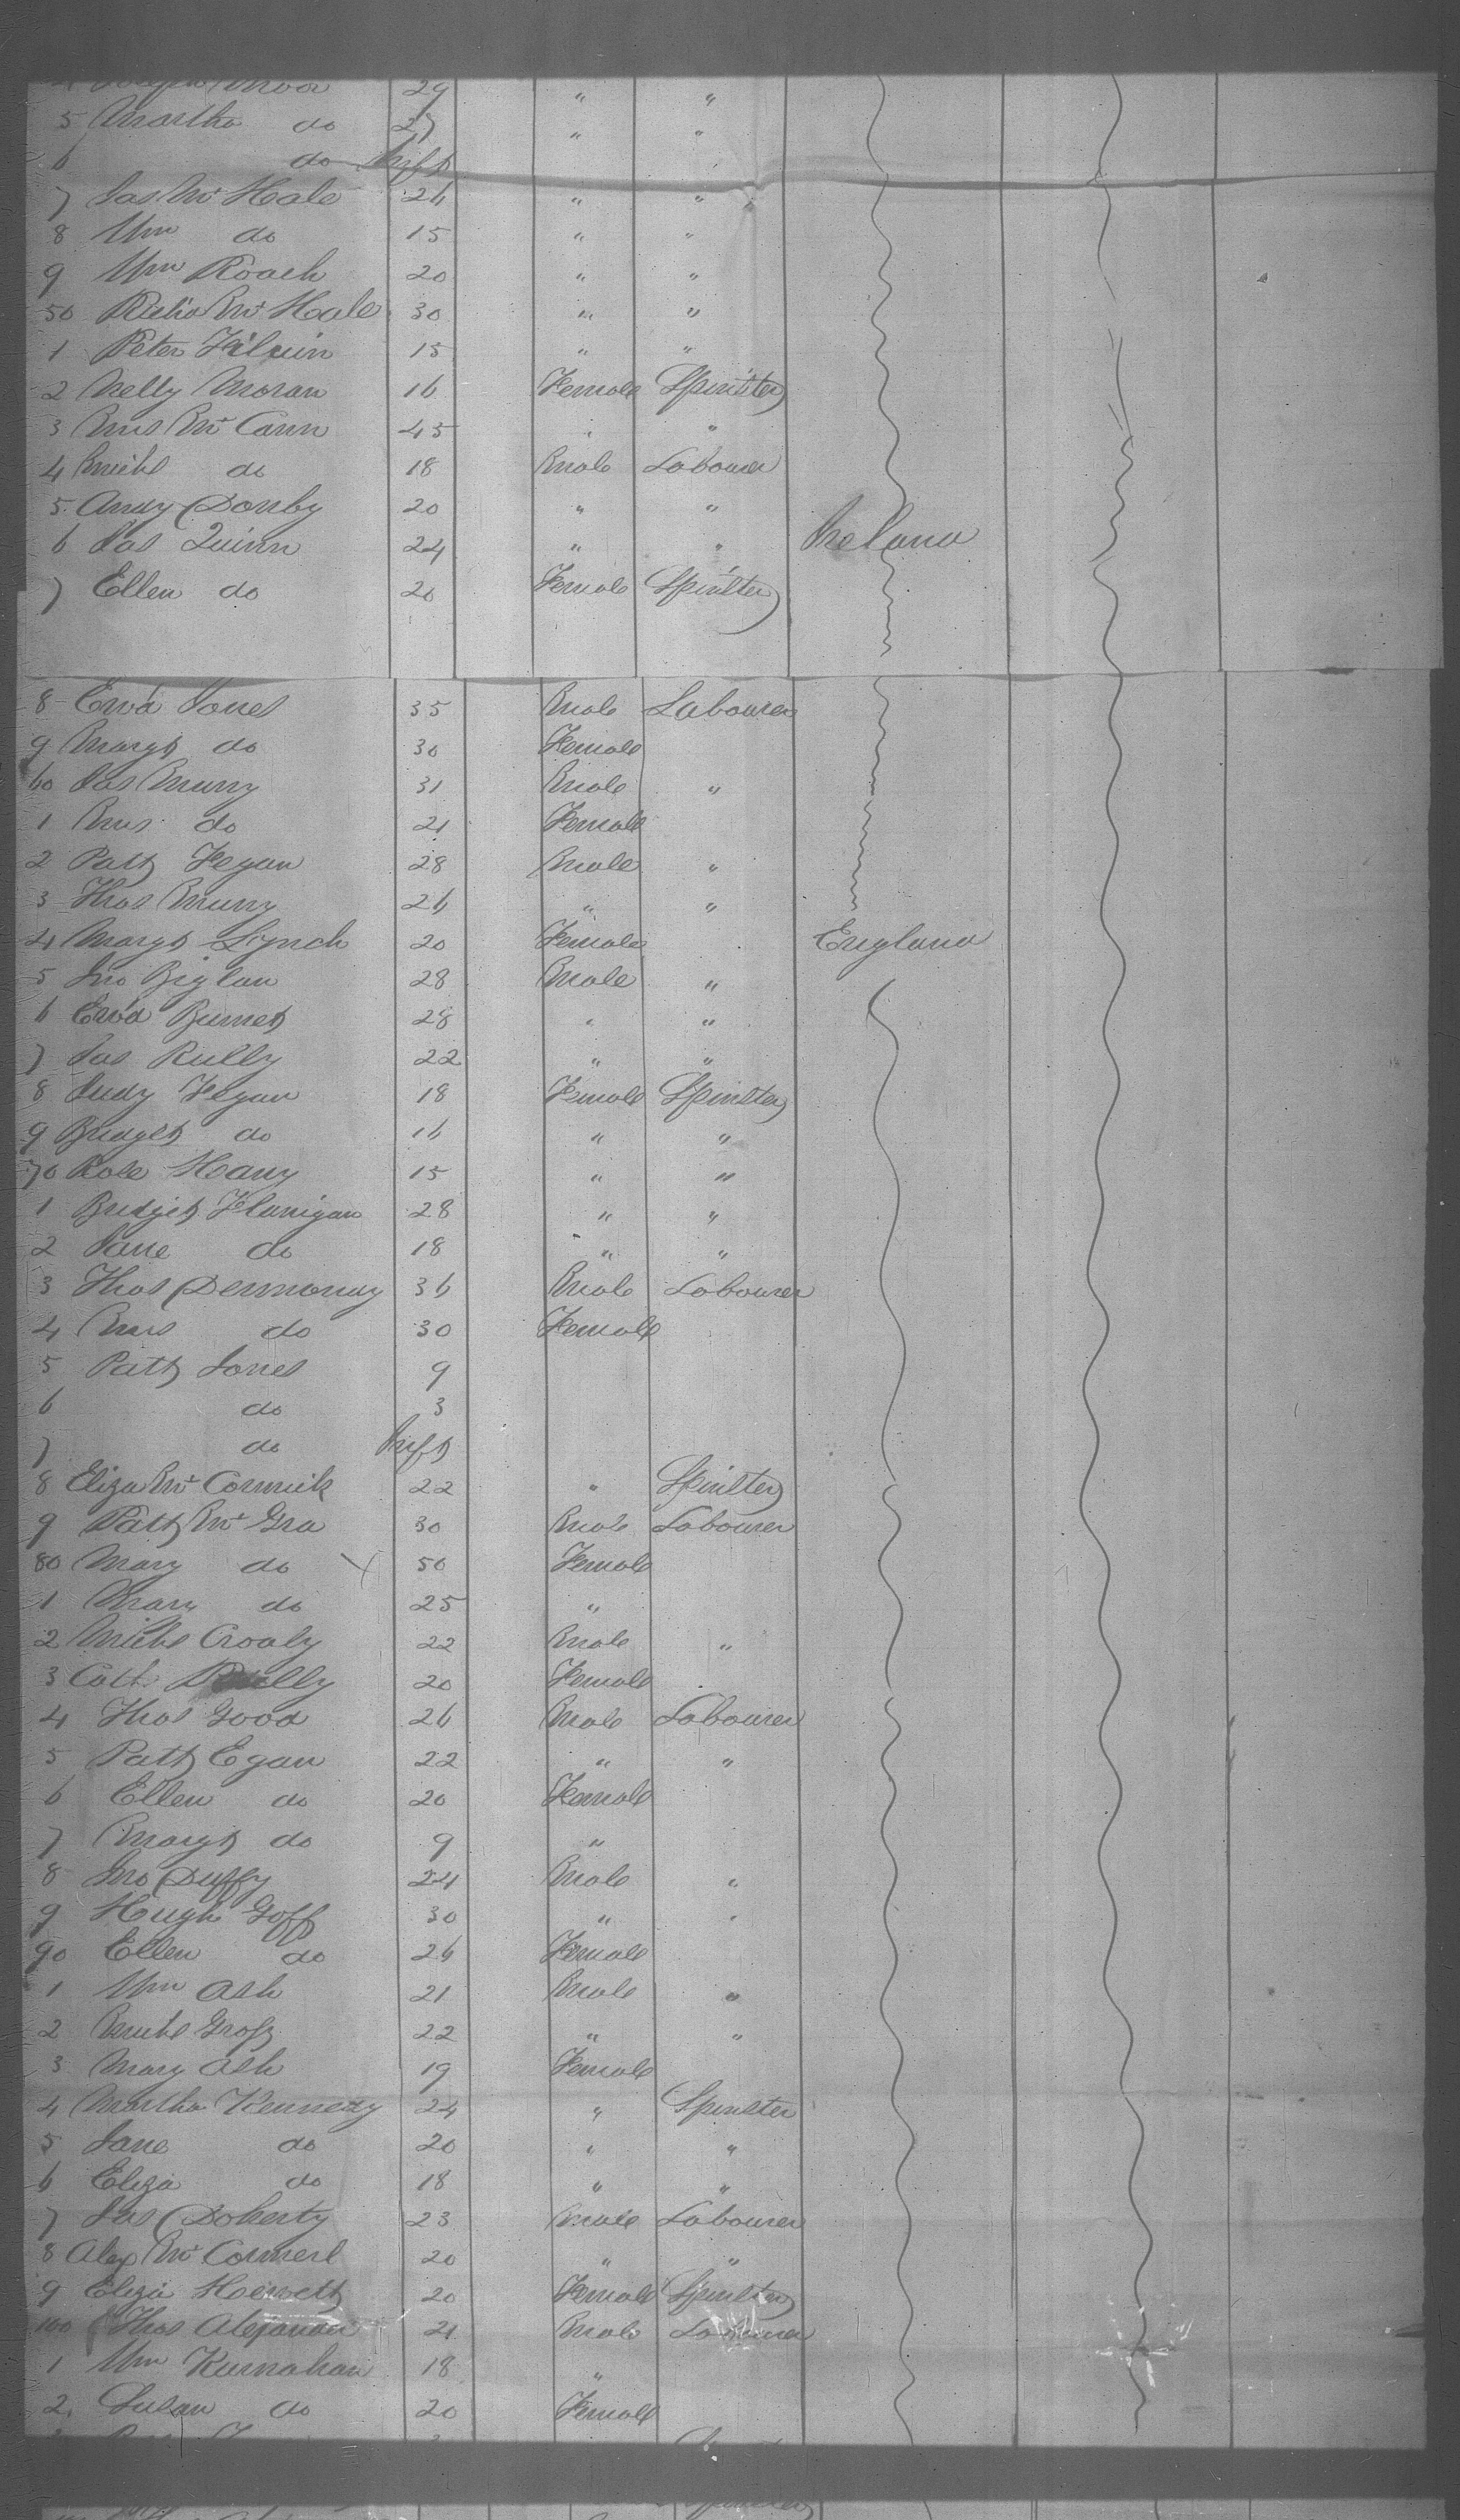 29 " "
5 Martha do 27 " "
6 do Inft
7 Jas Mc Hale 26 " "
8 Wm do 15 " "
9 Wm Roach 20 " "
50 Richd Mc Hale 30 " "
1 Peter 15 " "
2 Nelly Moran 16 Female Spinster
3 Mrs Mc Cann 45 " "
4 Michl do 18 Male Labourer
5 Andy 20 " "
6 Jas Quinn 24 " " Ireland
7 Ellen do 20 Female Spinster
8 Ewd Jones 35 Male Labourer
9 Margt do 30 Female
60 Jas Murry 31 Male "
1 Mrs do 21 Female
2 Patt Fegan 28 Male "
3 Thos Murry 26 " "
4 Margt Lynch 20 Female England
5 Jno Biglan 28 Male "
6 Ewd Burnet 28 " "
7 Jas Rully 22 " "
8 Judy Fegan 18 Female Spinster
9 Bridget do 16 " "
70 Rose Hany 15 " "
1 Bridget Flanigan 28 " "
2 Jane do 18 " "
3 Thos 36 Male Labourer
4 Mrs do 30 Female
5 Patt Jones 9
6 do 3
7 do Inft
8 Eliza Mc Cormick 22 " Spinster
9 Patt Mc Gra 30 Male Labourer
80 Mary do 50 Female
1 Mary do 25 "
2 Michl Croaly 22 Male "
3 Cath 20 Female
4 Thos Good 26 Male Labourer
5 Patt Egan 22 " "
6 Ellen do 20 Female
7 Margt do 9 "
8 Jno Duffy 24 Male "
9 Hugh Goff 30 " "
90 Ellen do 26 Female
1 Wm Ash 21 Male "
2 Michl 22 " "
3 Mary Ash 19 Female
4 Martha Kennedy 24 " Spinster
5 Jane do 20 " "
6 Eliza do 18 " "
7 Jas Doherty 23 Male Labourer
8 Alex Mc 20 " "
9 Eliza Hewett 20 Female Spinster
100 Thos Alexander 21 Male Labourer
1 Wm Kurnahan 18 "
2 Susan do 20 Female